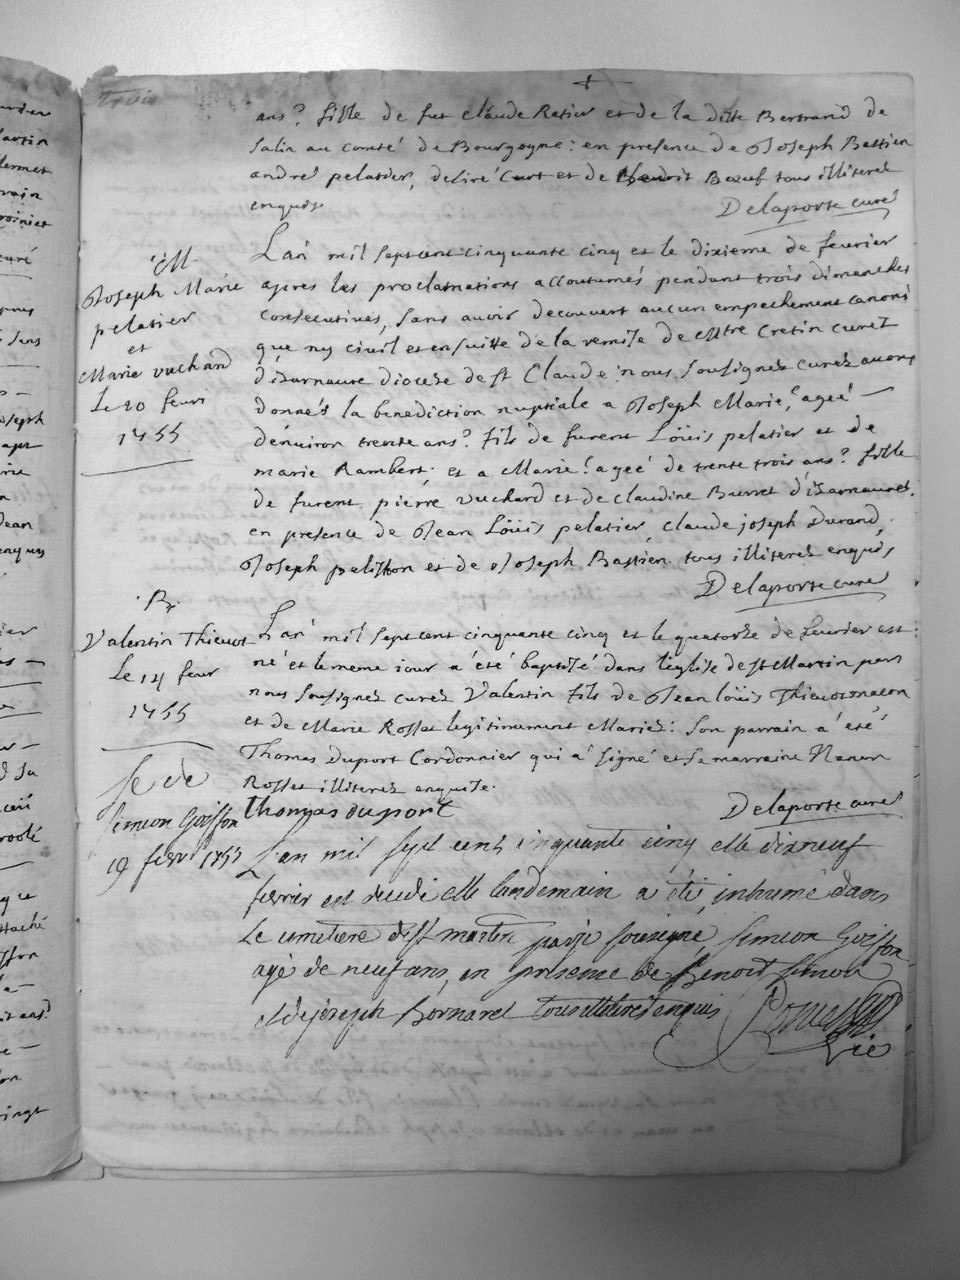 trois
ans? fille de fut claude Ratier et de la dite Bertrand de
Salin au comté de Bourgogne: en presence de Joseph Bastien
andré pelatier, desiré Curt et de Benoit Bœuf tous illiteréz
enquis
Delaporte curé
M
Joseph Marie
pelatier
et
Marie vuchard
Le 10 feuri
1755
L'an mil sept cent cinquante cinq et le dixieme de feurier
apres les proclamations accoutumés pendant trois dimanches
consecutives, sans auoir decouvert aucun empechement canoni
que ny ciuil et ensuitte de la remise de Mtre Cretin curéz
d'izarnaure diocese de st Claude: nous soussignez curez auons
donnés la benediction nuptiale a Joseph Marie, ageé
d'enuiron trente ans? fils de furent Loüis pelatier et de
marie Rambert. et a Marie! ageé de trente trois ans? fille
de furent pierre vuchard et de claudine Burret d'izarnaures.
en presence de Jean Loüis pelatier, claude joseph Durand,
Joseph pelisson et de Joseph Bastien tous illiterés enquis
Delaporte curé
B.
Valentin Thieuot
Le 14 feur
1755
L'an mil sept cent cinquante cinq et le quatorze de feurier est
né et le meme iour a été baptisé dans l'eglise de st Martin par
nous soussignez curez Valentin fils de Jean loüis Thieuot
et de Marie Rosset legitimement Mariez: son parrain a été
Thomas Duport Cordonnier qui a signé et sa marraine
Rosset illiterez enquise.
Thomas duport
Delaporte curé
Simeon Goiffon
19 fevri 1755
L'an mil sept cent cinquante cinq et le dixneuf
fevrier est decedé et le landemain a été inhumé dans
le cimetiere de st martin par je soussigné, Simeon Goiffon
agé de neuf ans, en presence de Benoit Simon
et de joseph Bornarel tous illiteréz enquis
vic